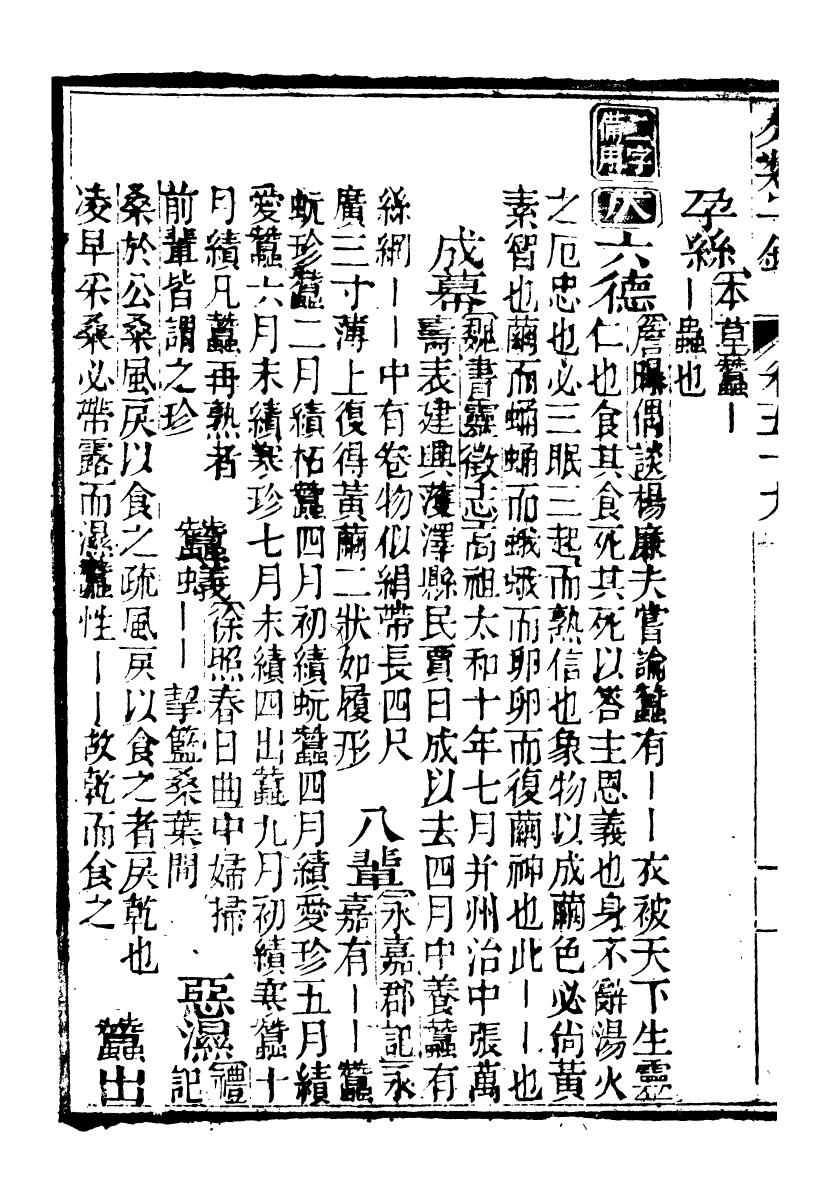 分類字錦 卷五十九
孕絲 本草蠶｜
｜蟲也
二字備用
六德 詹曝偶談楊廉夫嘗論蠶有｜｜衣被天下生靈
仁也食其食死其死以答主恩義也身不辭湯火
之厄忠也必三眠三起而熟信也象物以成繭色必尚黃
素智也繭而蛹蛹而蛾蛾而卵卵而復繭神也此｜｜也
成幕 魏書靈徵志高祖太和十年七月并州治中張萬
壽表建興濩澤縣民賈日成以去四月中養蠶有
絲網｜｜中有卷物似絹帶長四尺
廣三寸薄上復得黃繭二狀如履形
八輩 永嘉郡記永
嘉有｜｜蠶
蚖珍蠶二月績柘蠶四月初績蚖蠶四月績愛珍五月績
愛蠶六月末績寒珍七月末績四出蠶九月初績寒蠶十
月績凡蠶再熟者
前輩皆謂之珍
蠶蟻 徐照春日曲中婦掃
｜｜挈籃桑葉間
惡濕 禮記
桑於公桑風戾以食之疏風戾以食之者戾乾也
凌早采桑必帶露而濕蠶性｜｜故乾而食之
蠶出